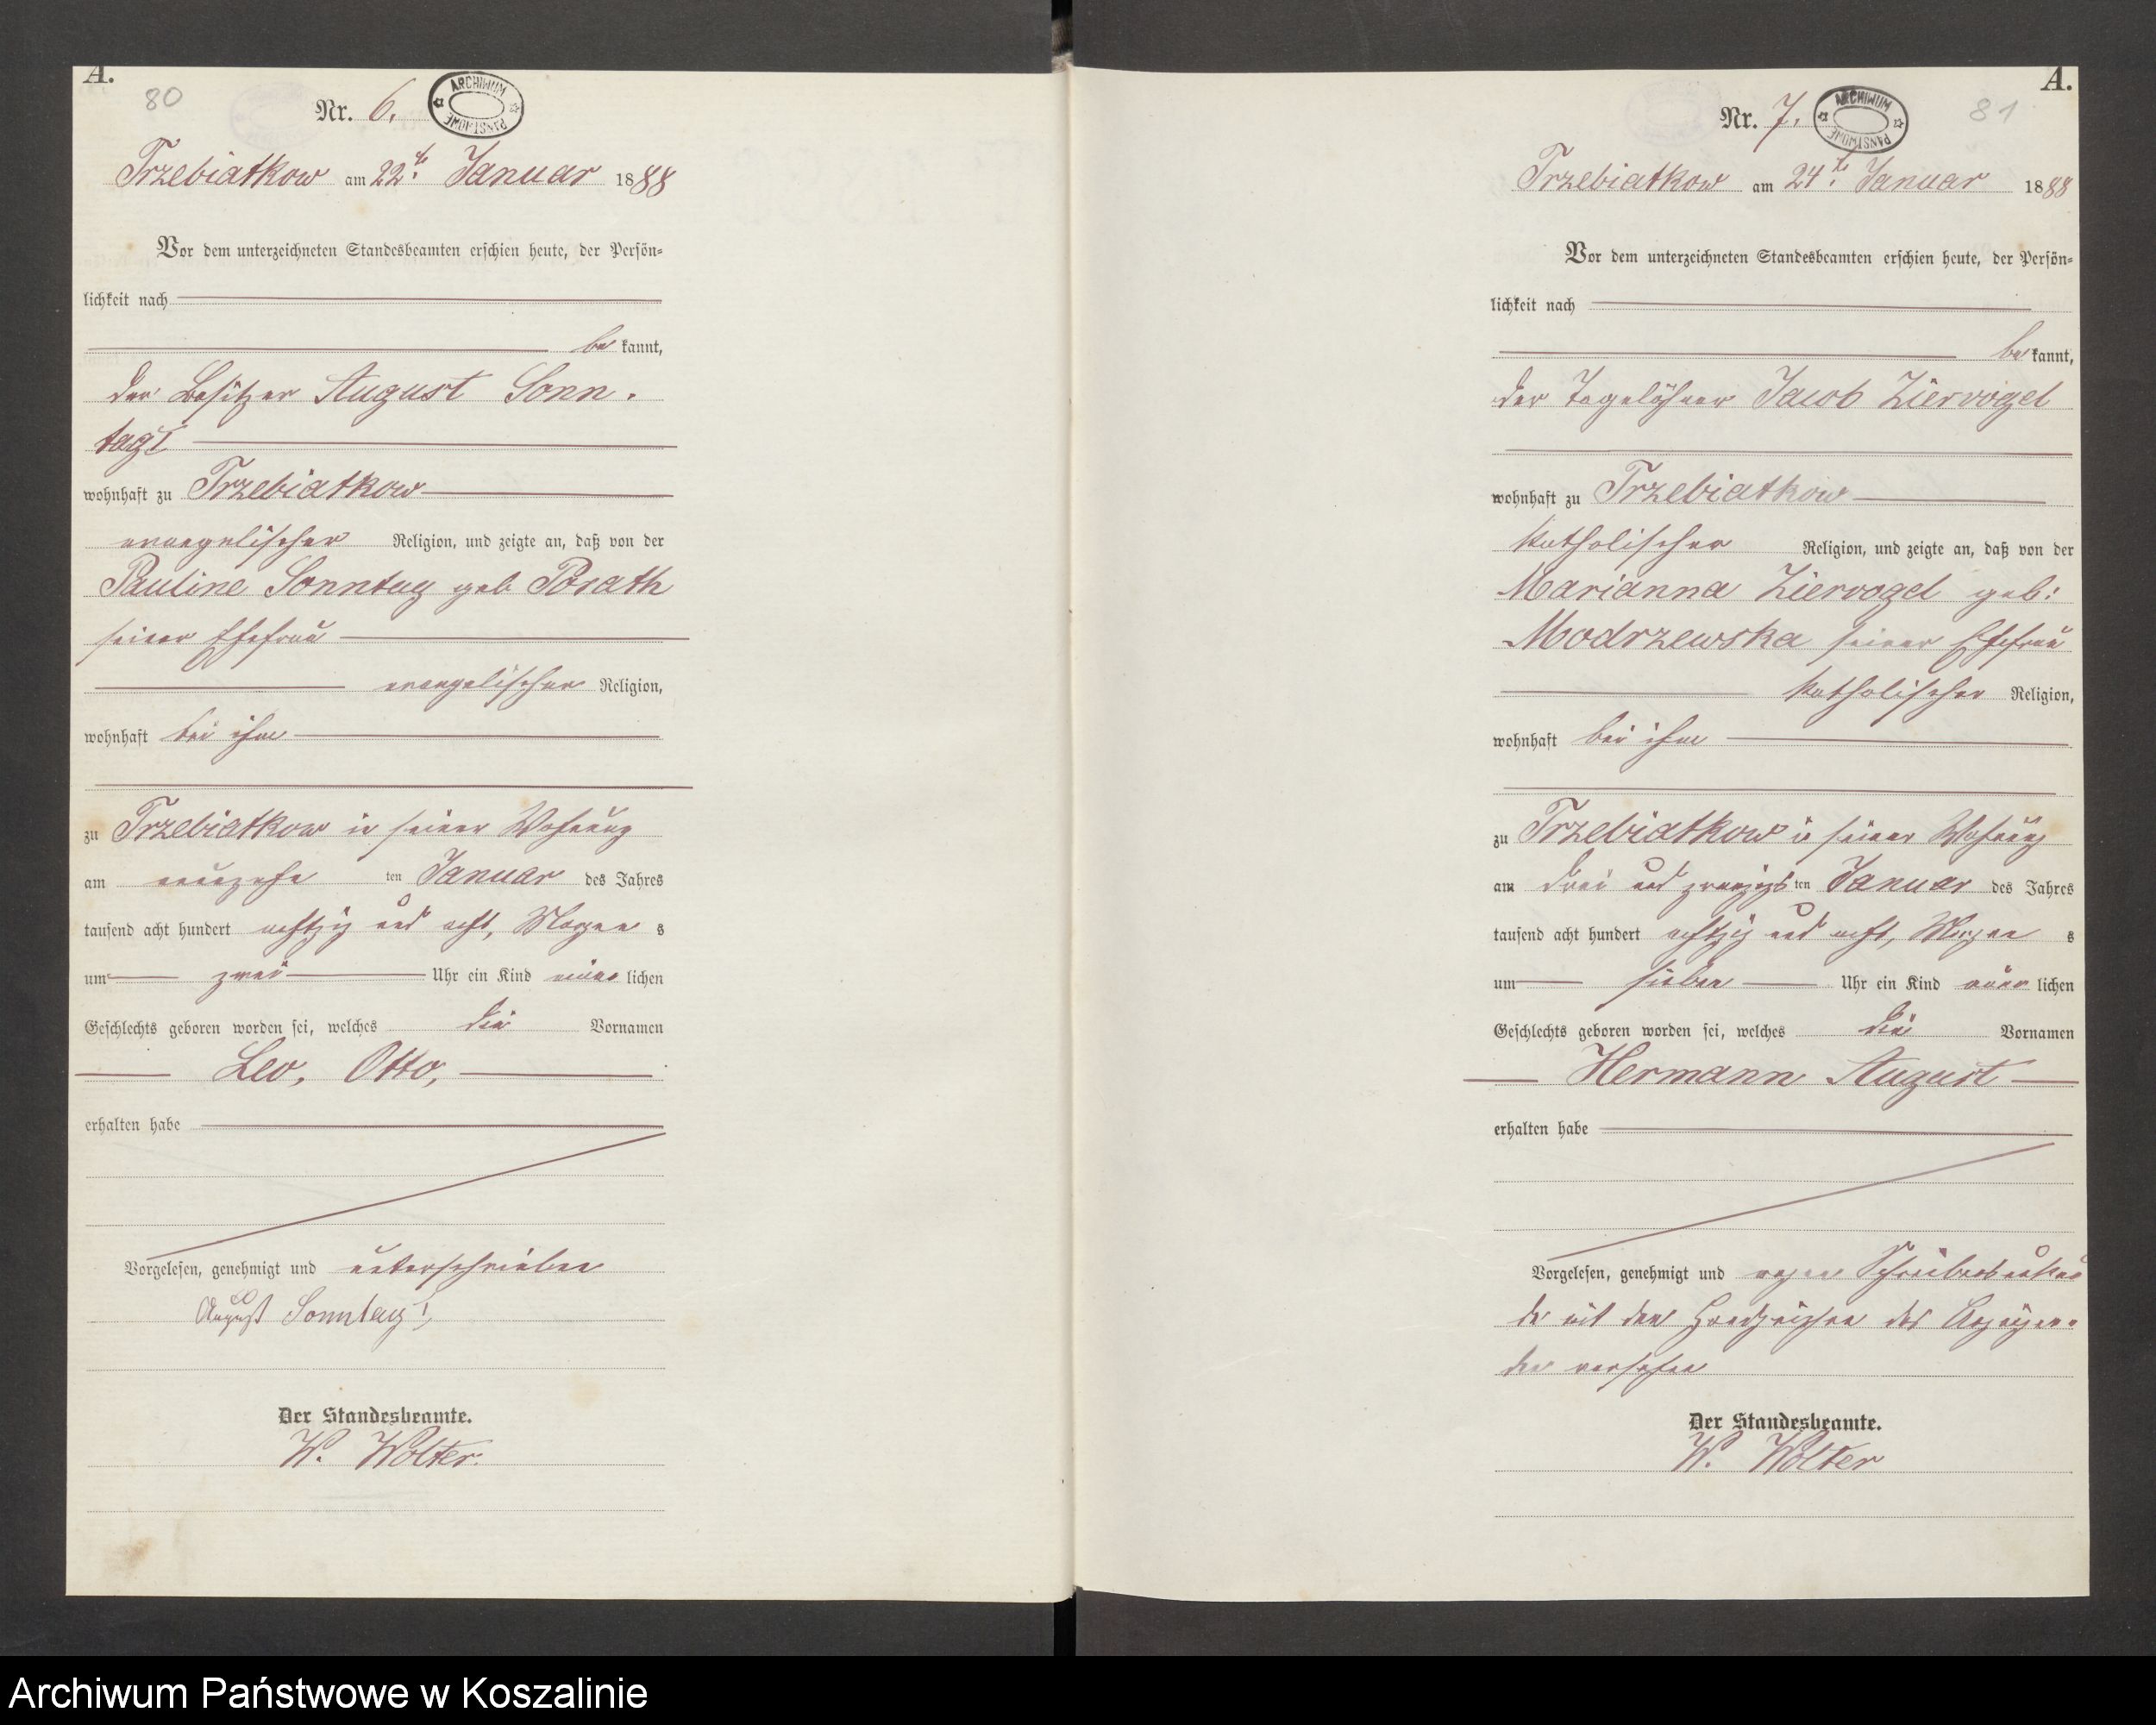 A.
80
Nr. 6.
ARCHIWUM PAŃSTWOWE
Trzebiatkow am 22ten Januar 1888
Vor dem unterzeichneten Standesbeamten erschien heute, der Persön-
lichkeit nach
be kannt,
der Besitzer August Sonn-
tag I
wohnhaft zu Trzebiatkow
evangelischer Religion, und zeigte an, daß von der
Pauline Sonntag geb Porath
seiner Ehefrau
evangelischer Religion,
wohnhaft bei ihm
zu Trzebiatkow in seiner Wohnung
am neunzehn ten Januar des Jahres
tausend acht hundert achtzig und acht, Morgen s
um zwei Uhr ein Kind männ lichen
Geschlechts geboren worden sei, welches die Vornamen
Leo, Otto,
erhalten habe
Vorgelesen, genehmigt und unterschrieben
August Sonntag I
Der Standesbeamte.
W. Wolter.
A.
81
Nr. 7.
ARCHIWUM PAŃSTWOWE
Trzebiatkow am 24ten Januar 1888
Vor dem unterzeichneten Standesbeamten erschien heute, der Persön-
lichkeit nach
be kannt,
der Tagelöhner Jacob Ziervogel
wohnhaft zu Trzebiatkow
katholischer Religion, und zeigte an, daß von der
Marianna Ziervogel geb:
Modrzewska seiner Ehefrau
katholischer Religion,
wohnhaft bei ihm
zu Trzebiatkow in seiner Wohnung
am drei und zwanzigs ten Januar des Jahres
tausend acht hundert achtzig und acht, Morgen s
um sieben Uhr ein Kind männ lichen
Geschlechts geboren worden sei, welches die Vornamen
Hermann August
erhalten habe
Vorgelesen, genehmigt und wegen Schreibensunkun
de mit den Handzeichen des Anzeigen-
den versehen
Der Standesbeamte.
W. Wolter
Archiwum Państwowe w Koszalinie